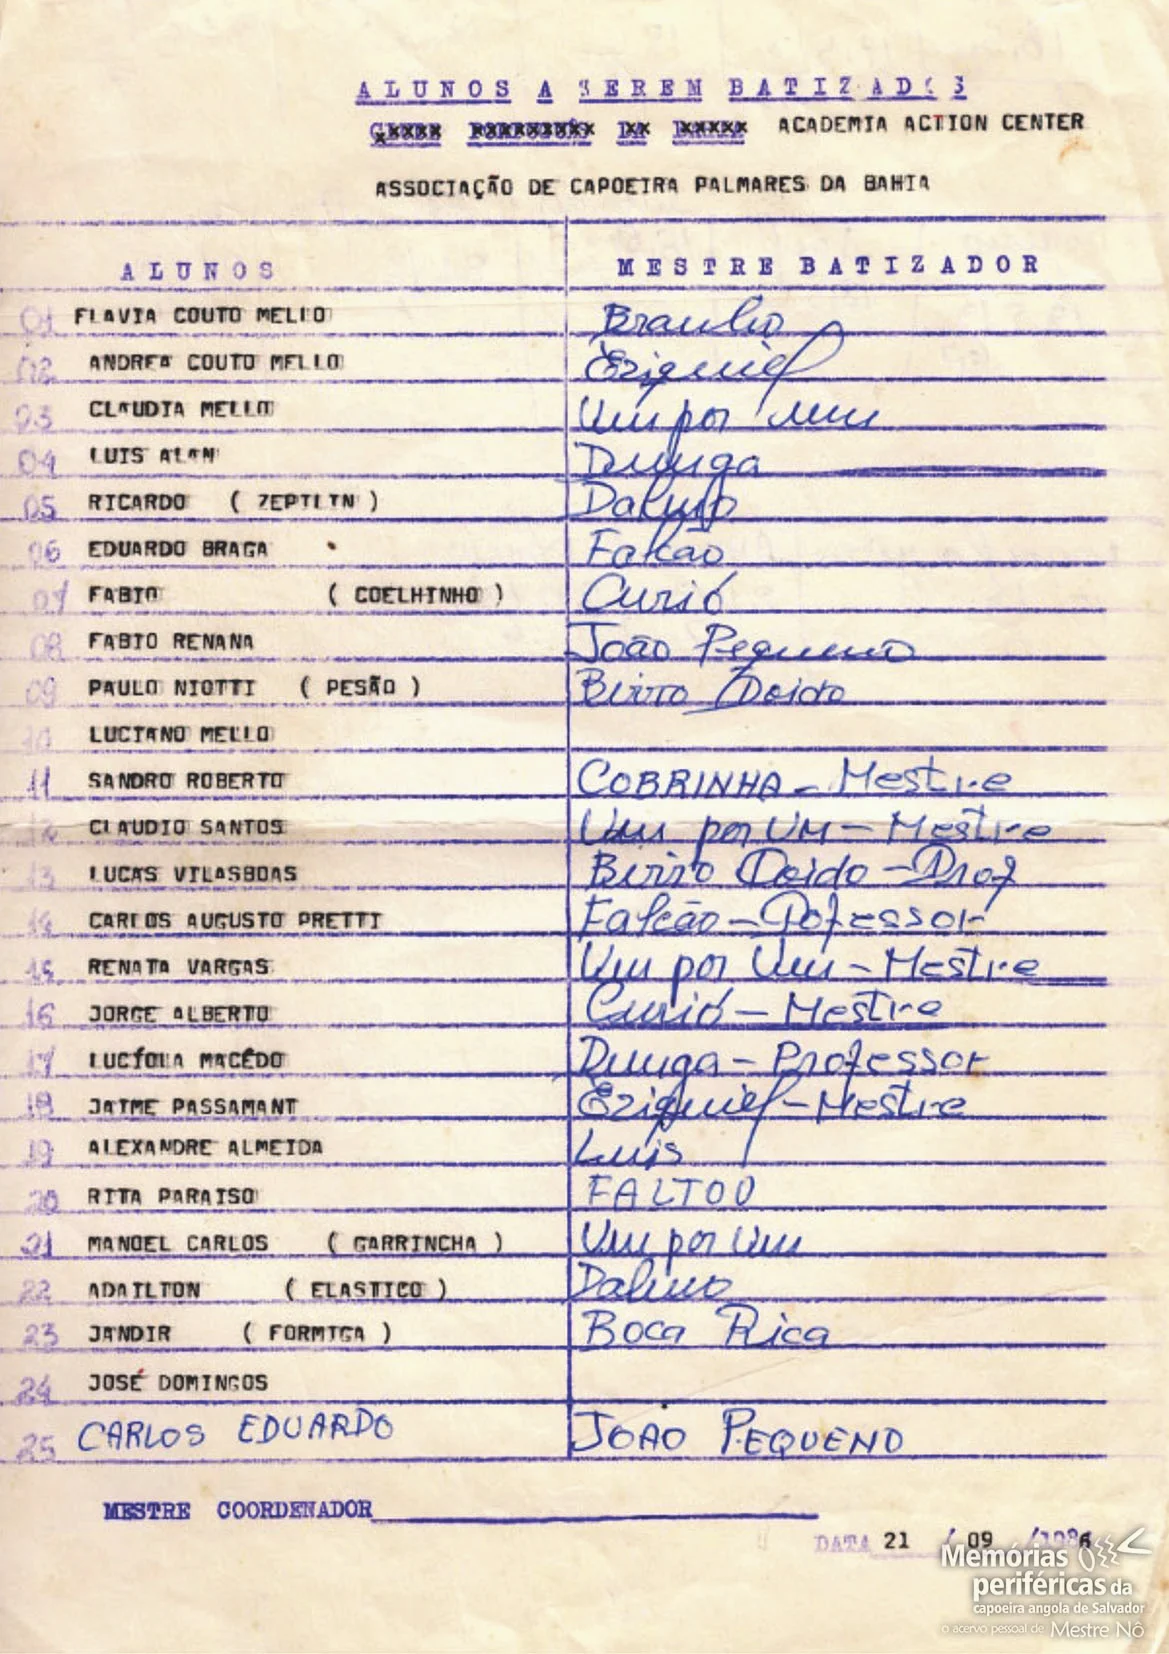 ALUNOS A SEREM BATIZADOS
ACADEMIA ACTION CENTER
ASSOCIAÇÃO DE CAPOEIRA PALMARES DA BAHIA
ALUNOS MESTRE BATIZADOR
01 FLAVIA COUTO MELLO Braulio
02 ANDREA COUTO MELLO Eziquiel
03 CLAUDIA MELLO Um por um
04 LUIS ALAN Dunga
05 RICARDO ( ZEPILIN ) Dalmo
06 EDUARDO BRAGA Falcão
07 FABIO ( COELHINHO ) Curió
08 FABIO RENANA João Pequeno
09 PAULO NIOTTI ( PESÃO ) Birro Doido
10 LUCIANO MELLO
11 SANDRO ROBERTO COBRINHA - Mestre
12 CLAUDIO SANTOS Um por UM - Mestre
13 LUCAS VILASBOAS Birro Doido - Prof
14 CARLOS AUGUSTO PRETTI Falcão - Pofessor
15 RENATA VARGAS Um por Um - Mestre
16 JORGE ALBERTO Curió - Mestre
17 LUCÍOLA MACÊDO Dunga - Professor
18 JAIME PASSAMANI Eziquiel - Mestre
19 ALEXANDRE ALMEIDA Luís
20 RITA PARAISO FALTOU
21 MANOEL CARLOS ( GARRINCHA ) Um por Um
22 ADAILTON ( ELASTICO ) Dalmo
23 JANDIR ( FORMIGA ) Boca Rica
24 JOSÉ DOMINGOS
25 CARLOS EDUARDO JOAO PEQUENO
MESTRE COORDENADOR
DATA 21 / 09 /1986
Memórias
periféricas da
capoeira angola de Salvador
o acervo pessoal de Mestre Nô